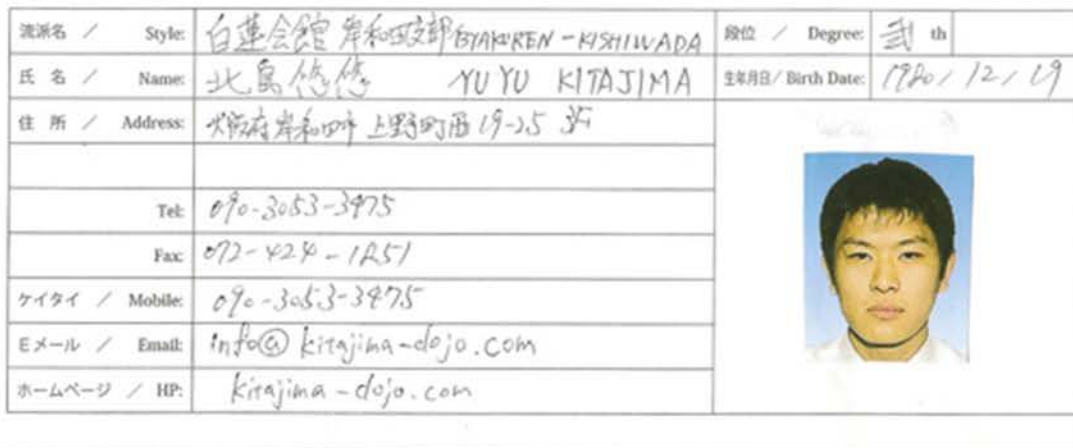 流派名 / Style: 白蓮会館 岸和田支部 BYAKUREN-KISHIWADA 段位 / Degree: 弐 th
氏 名 / Name: 北島悠悠 YUYU KITAJIMA 生年月日 / Birth Date: 1980 / 12 / 19
住 所 / Address: 大阪府岸和田市 上野町西 19-25
Tel: 090-3053-3975
Fax: 072-424-1251
ケイタイ / Mobile: 090-3053-3975
Eメール / Email: info@kitajima-dojo.com
ホームページ / HP: kitajima-dojo.com